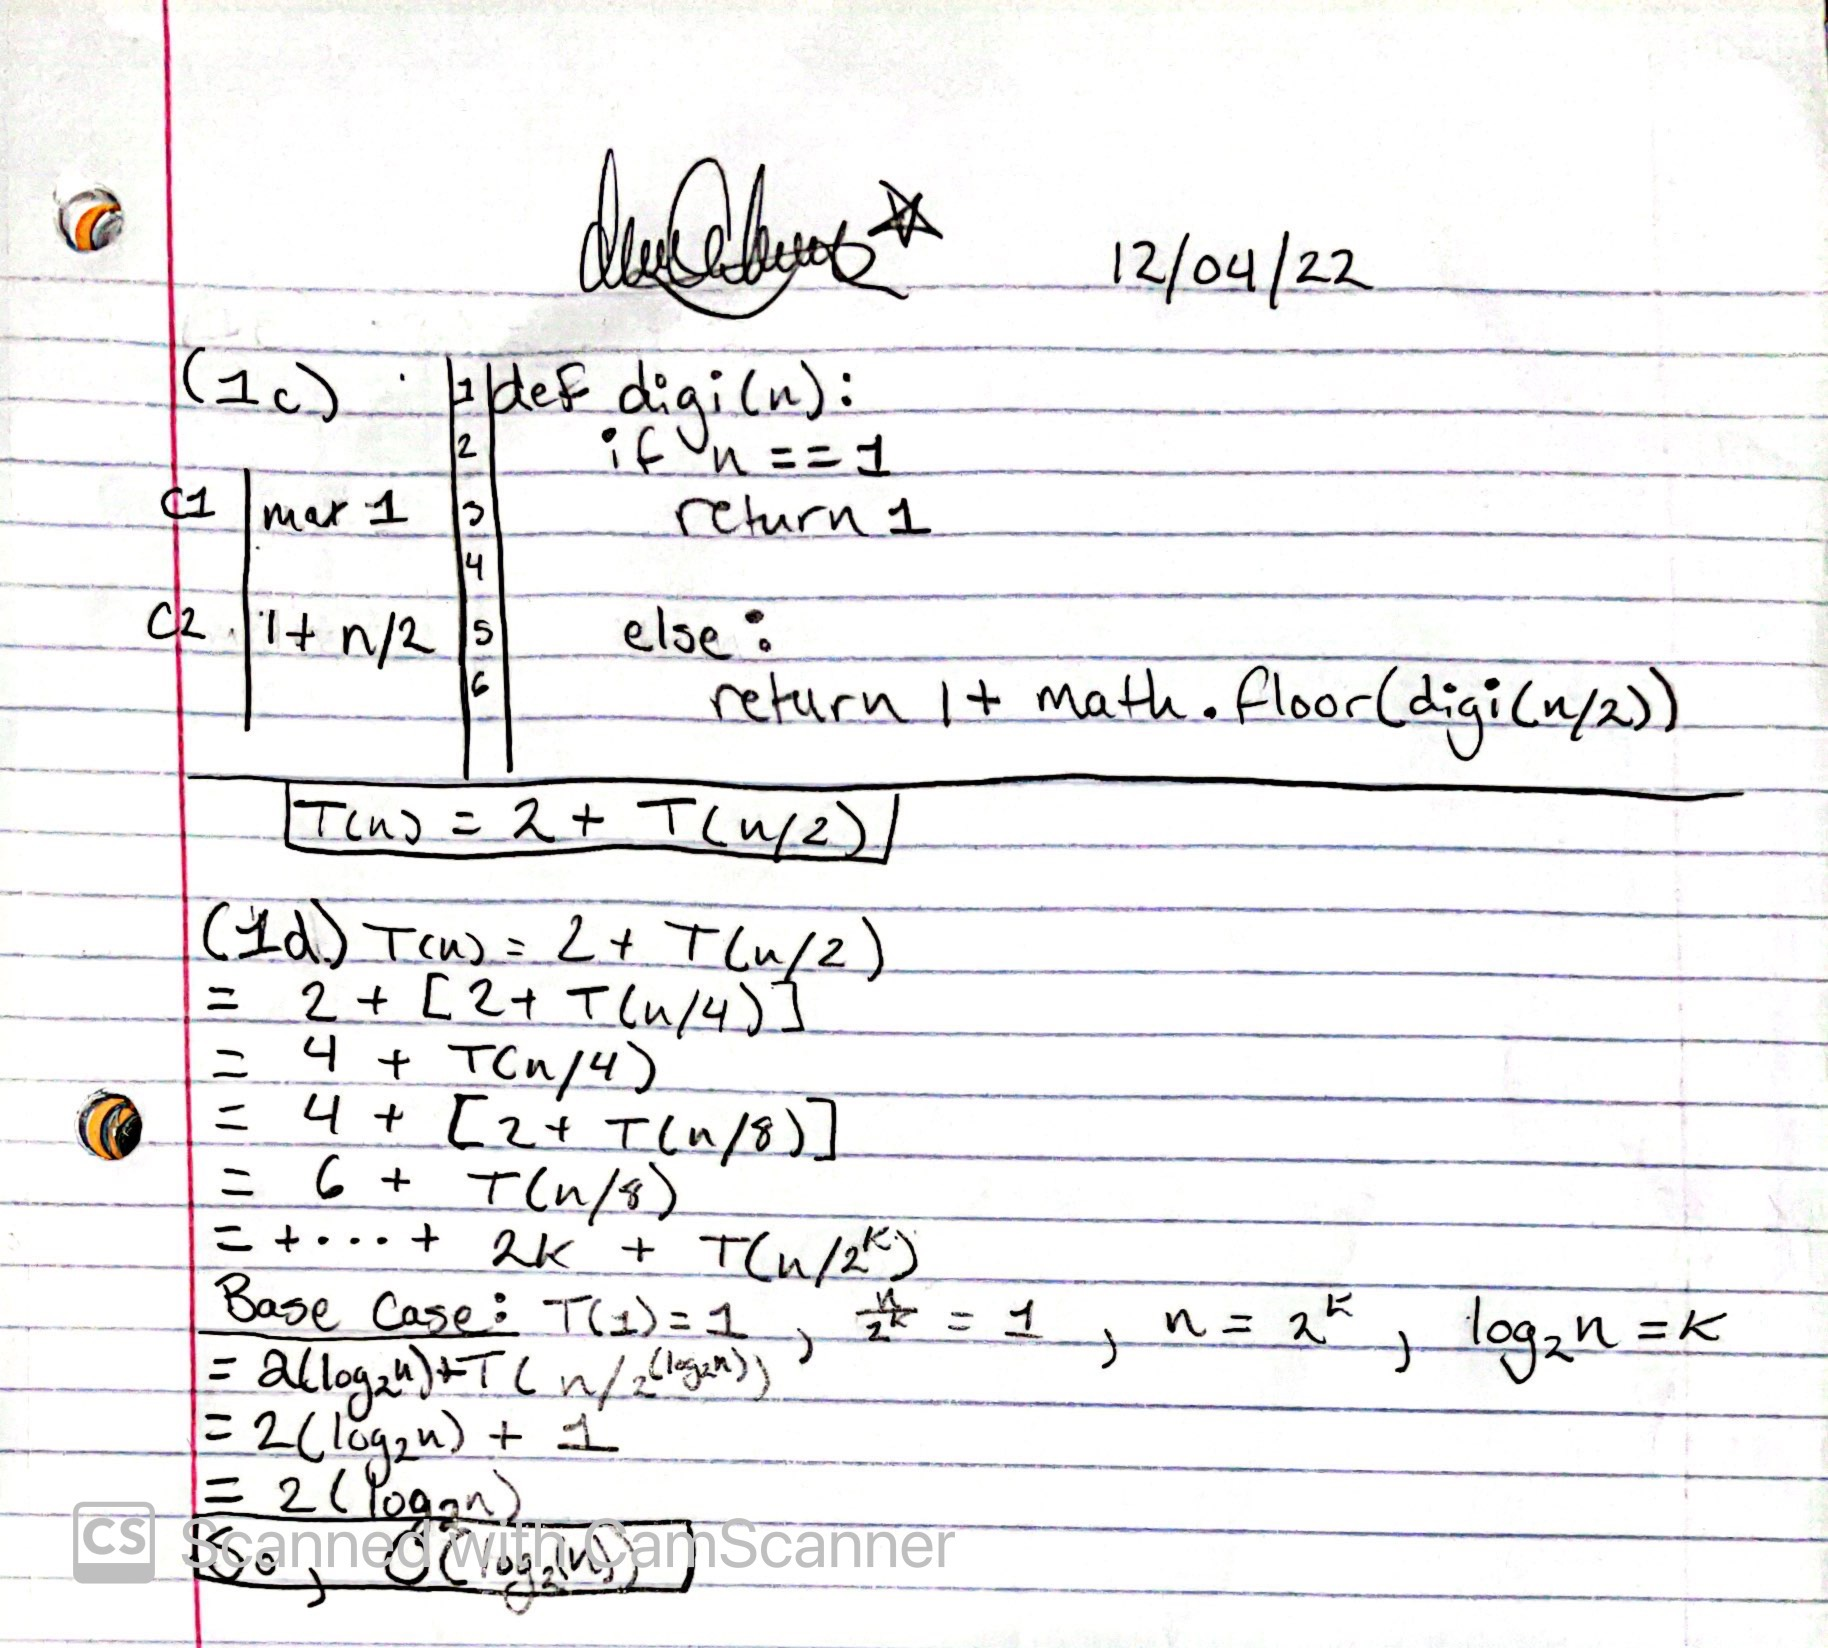 12/04/22
(1c)
1 def digi(n):
2 if n == 1
C1 max 1 3 return 1
4
C2 1 + n/2 5 else:
6 return 1 + math.floor(digi(n/2))
T(n) = 2 + T(n/2)
(1d) T(n) = 2 + T(n/2)
= 2 + [2 + T(n/4)]
= 4 + T(n/4)
= 4 + [2 + T(n/8)]
= 6 + T(n/8)
= + ... + 2k + T(n/2^k)
Base Case: T(1) = 1 , n/2^k = 1 , n = 2^k , log₂n = k
= 2(log₂n) + T(n/2^(log₂n))
= 2(log₂n) + 1
= 2(log₂n)
So, O(log₂(n))
CS Scanned with CamScanner